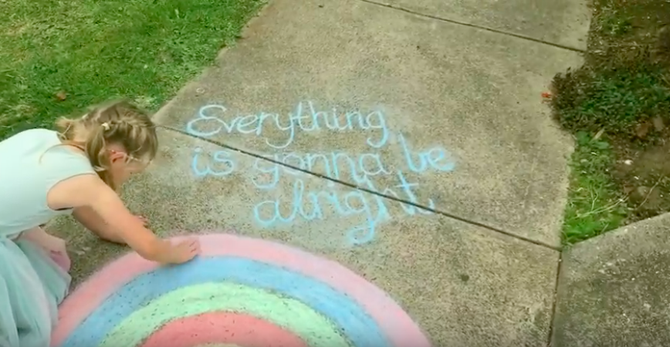 Everything
is gonna be
alright